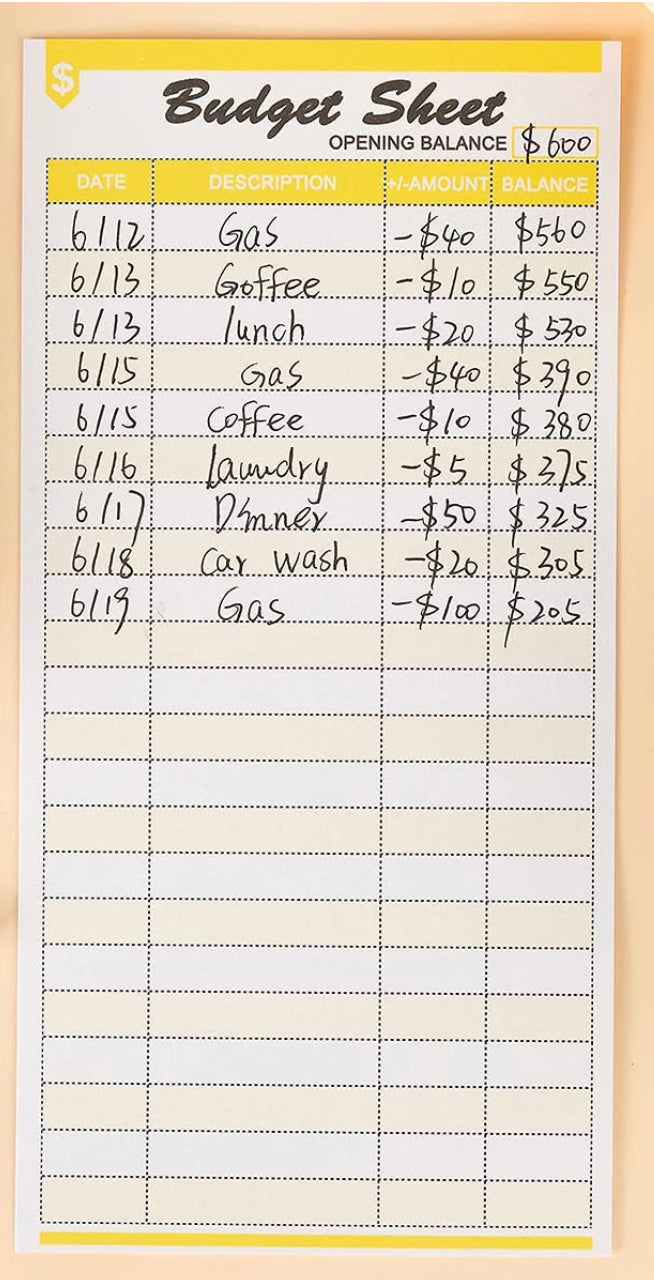 $
Budget Sheet
OPENING BALANCE $600
DATE DESCRIPTION +/-AMOUNT BALANCE
6/12 Gas -$40 $560
6/13 Goffee -$10 $550
6/13 lunch -$20 $530
6/15 Gas -$40 $390
6/15 Coffee -$10 $380
6/16 Laundry -$5 $375
6/17 Dinner -$50 $325
6/18 Car wash -$20 $305
6/19 Gas -$100 $205